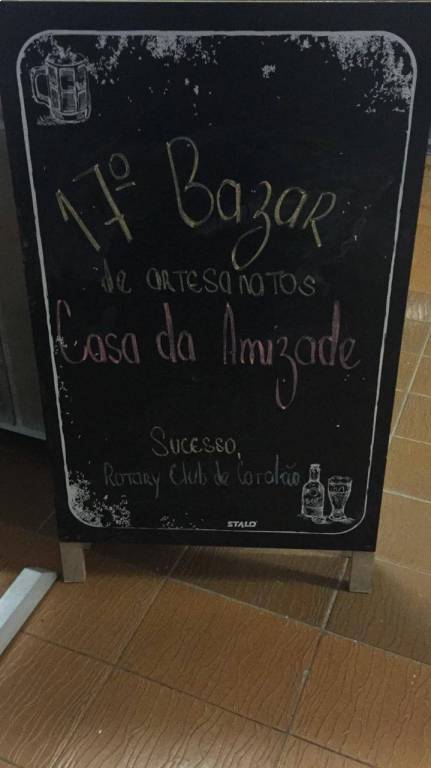 17º Bazar
de ARTESANATOS
Casa da Amizade
Sucesso,
Rotary Club de
STALO